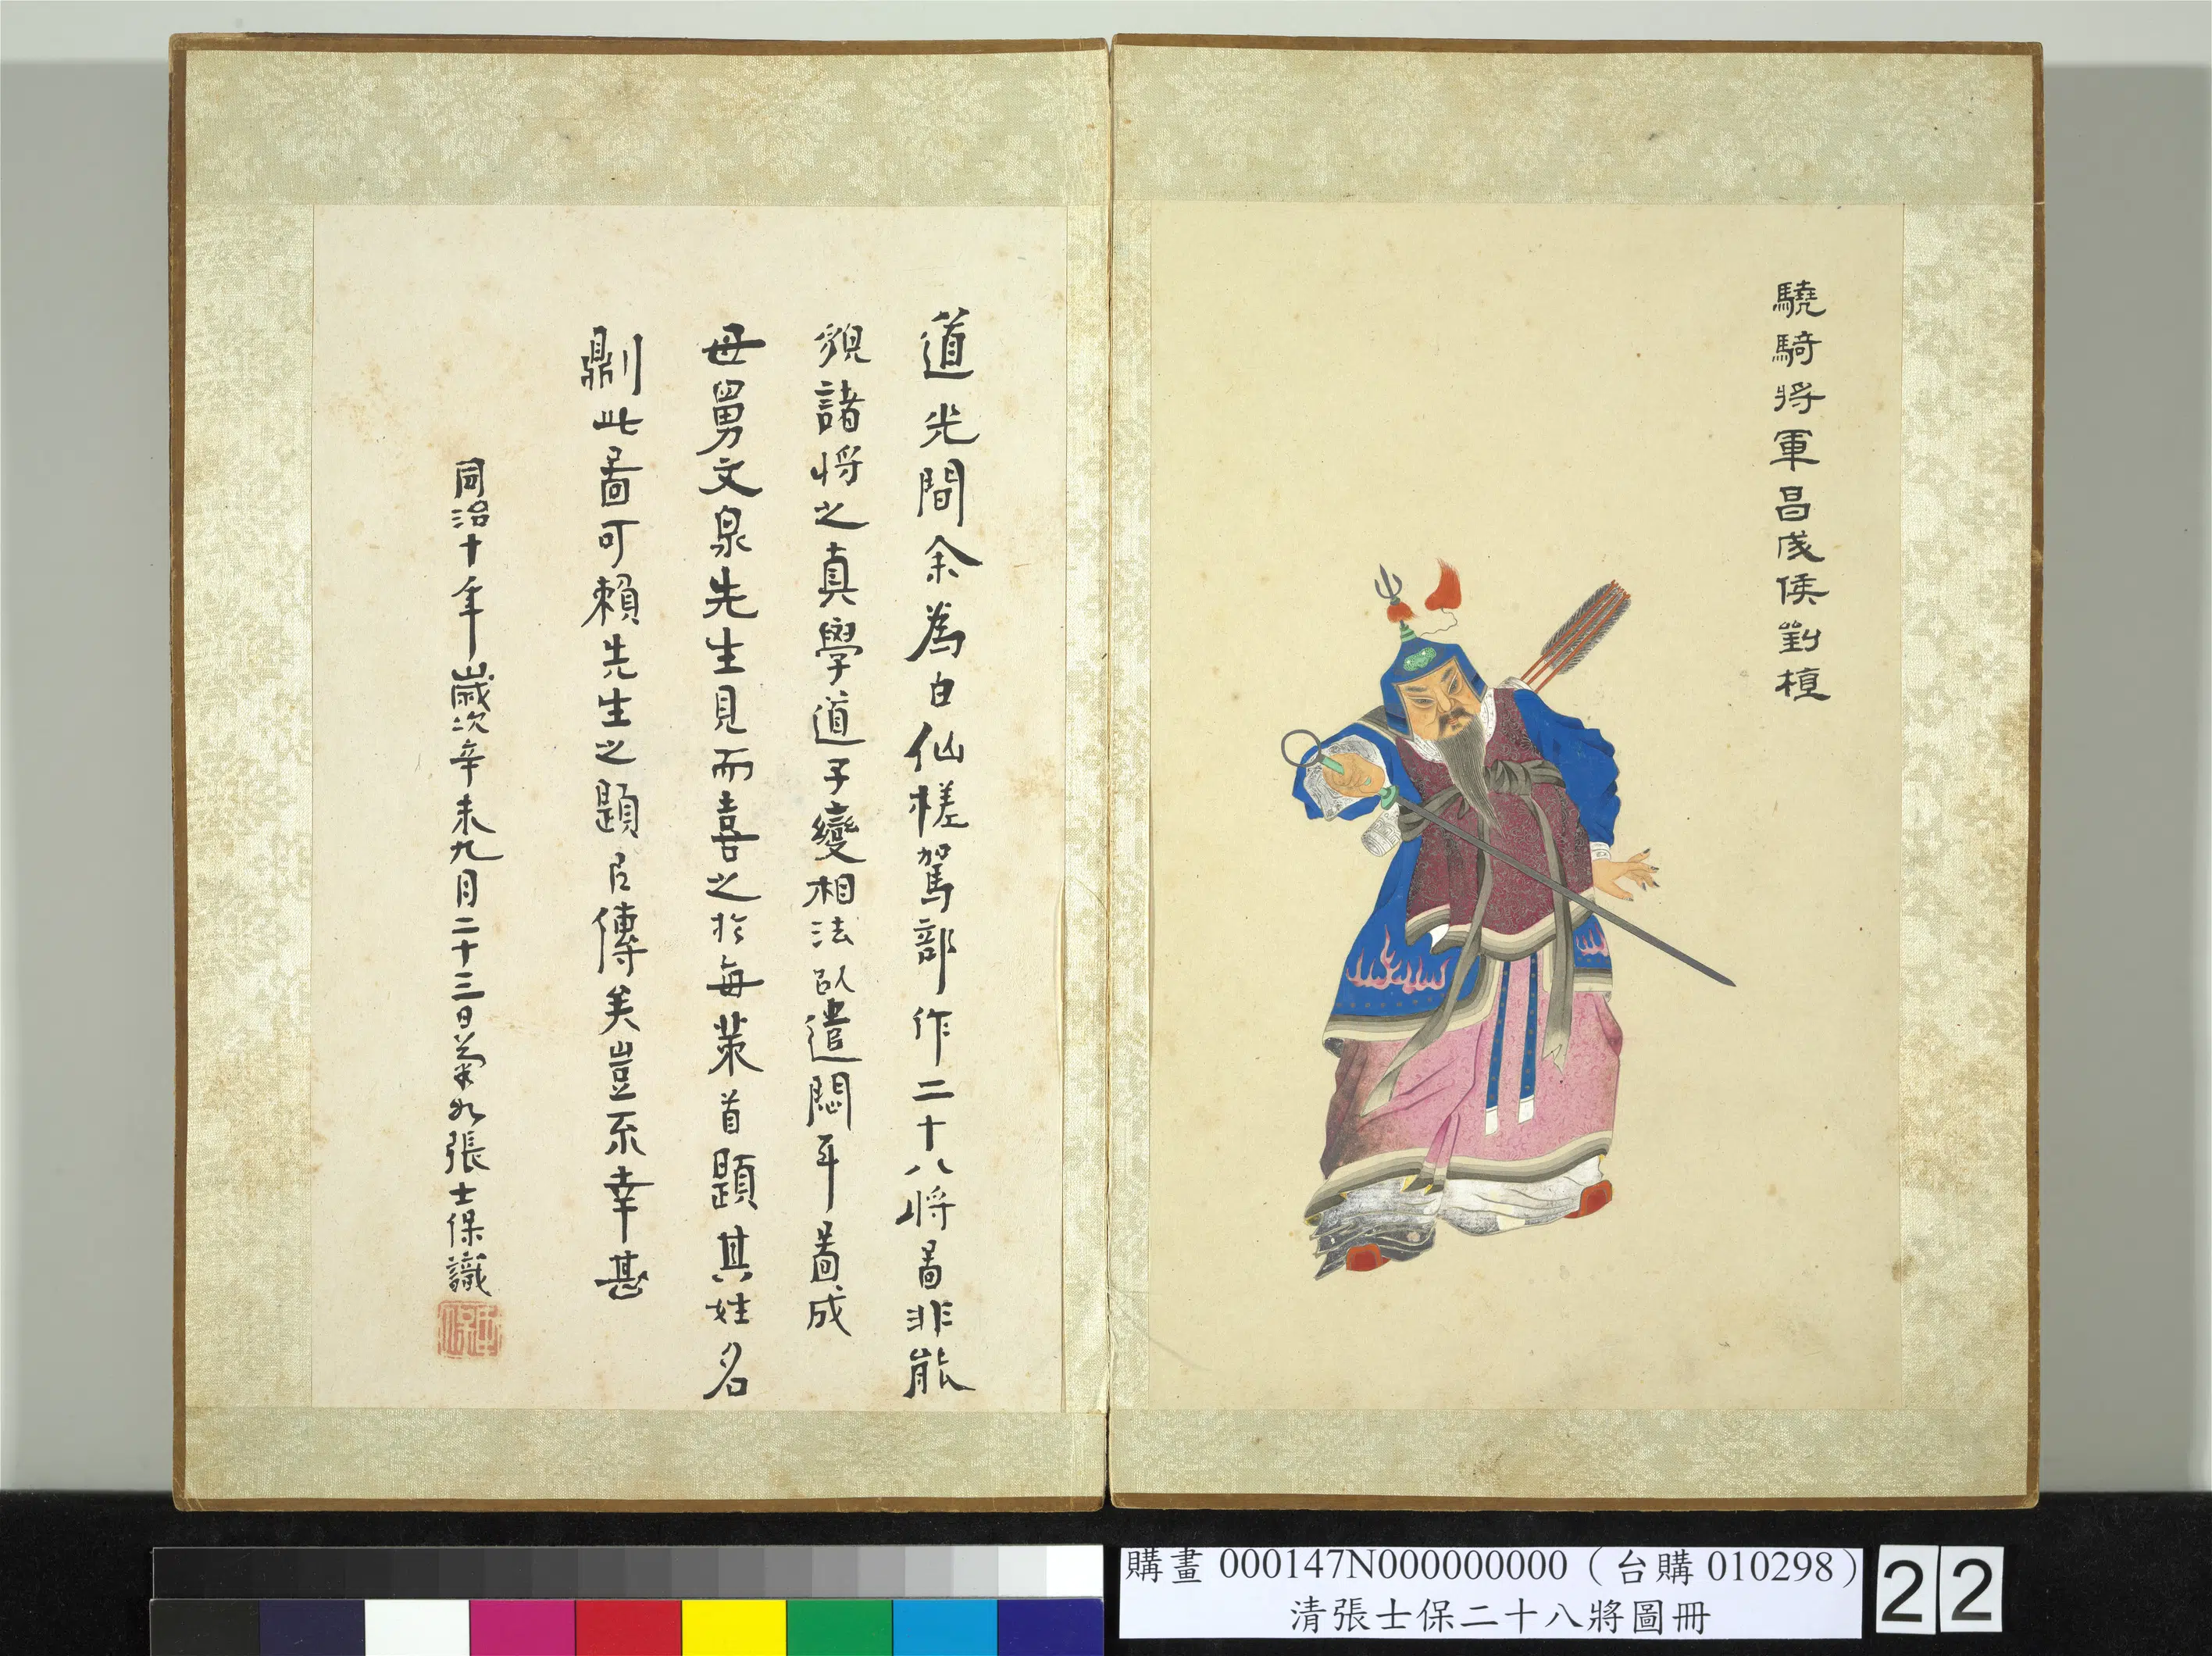 驍騎將軍昌成侯劉植
道光間余為白仙槎駕部作二十八將啚非能
貌諸將之真學道子變相法㠯遣悶耳啚成
母舅文泉先生見而喜之於每葉首題其姓名
鼎此啚可賴先生之題㠯傳美豈不幸甚
同治十年歲次辛未九月二十三日菊如張士保識
購畫 000147N000000000（台購 010298）
清張士保二十八將圖冊
22